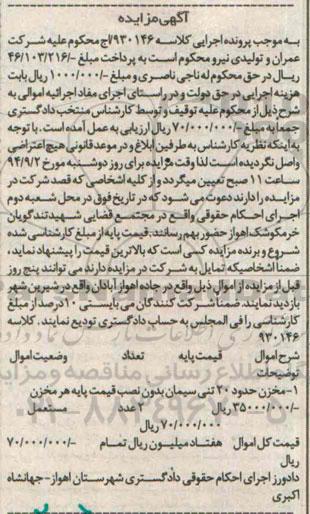 آگهی مزایده
به موجب پرونده اجرایی کلاسه ۹۳۰۱۴۶/اج محکوم علیه شرکت
عمران و تولیدی نیرو محکوم است به پرداخت مبلغ -/۴۶/۱۰۳/۲۱۶
ریال در حق محکوم له ناجی ناصری و مبلغ -/۱/۰۰۰/۰۰۰ ریال بابت
هزینه اجرایی در حق دولت و در راستای اجرای مفاد اجرائیه اموالی به
شرح ذیل از محکوم علیه توقیف و توسط کارشناس منتخب دادگستری
جمعا به مبلغ -/۷۰/۰۰۰/۰۰۰ ریال ارزیابی به عمل آمده است. با توجه
به اینکه نظریه کارشناس به طرفین ابلاغ و در موعد قانونی هیچ اعتراضی
واصل نگردیده است لذا وقت مزایده برای روز دوشنبه مورخ ۹۴/۹/۲
ساعت ۱۱ صبح تعیین میگردد و از کلیه اشخاصی که قصد شرکت در
مزایده را دارند دعوت می شود که در تاریخ فوق در محل شعبه دوم
اجرای احکام حقوقی واقع در مجتمع قضایی شهید تندگویان
خرمکوشک اهواز حضور بهم رسانند. قیمت پایه از مبلغ کارشناسی شده
شروع و برنده مزایده کسی است که بالاترین قیمت را پیشنهاد نماید،
ضمنا اشخاصیکه تمایل به شرکت در مزایده دارند می توانند پنج روز
قبل از مزایده از اموال ذیل واقع در جاده اهواز آبادان واقع در شیرین شهر
بازدید نمایند. ضمنا شرکت کنندگان می بایستی ۱۰ درصد از مبلغ
کارشناسی را فی المجلس به حساب دادگستری تودیع نمایند. کلاسه
۹۳۰۱۴۶
شرح اموال قیمت پایه تعداد وضعیت اموال
توضیحات
۱- مخزن حدود ۲۰ تنی سیمان بدون نصب قیمت پایه هر مخزن
-/۳۵۰۰۰/۰۰۰ ریال ۲ عدد مستعمل
۷۰/۰۰۰/۰۰۰ ریال
قیمت کل اموال هفتاد میلیون ریال تمام -/۷۰/۰۰۰/۰۰۰
ریال
دادورز اجرای احکام حقوقی دادگستری شهرستان اهواز- جهانشاه
اکبری